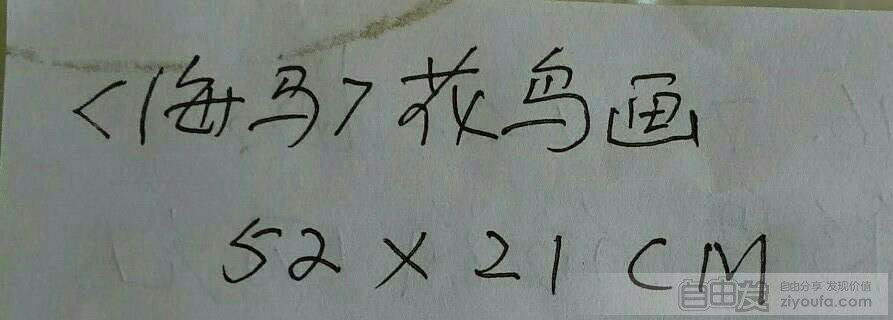 <海马>花鸟画
52×21CM
自由发
自由分享 发现价值
ziyoufa.com